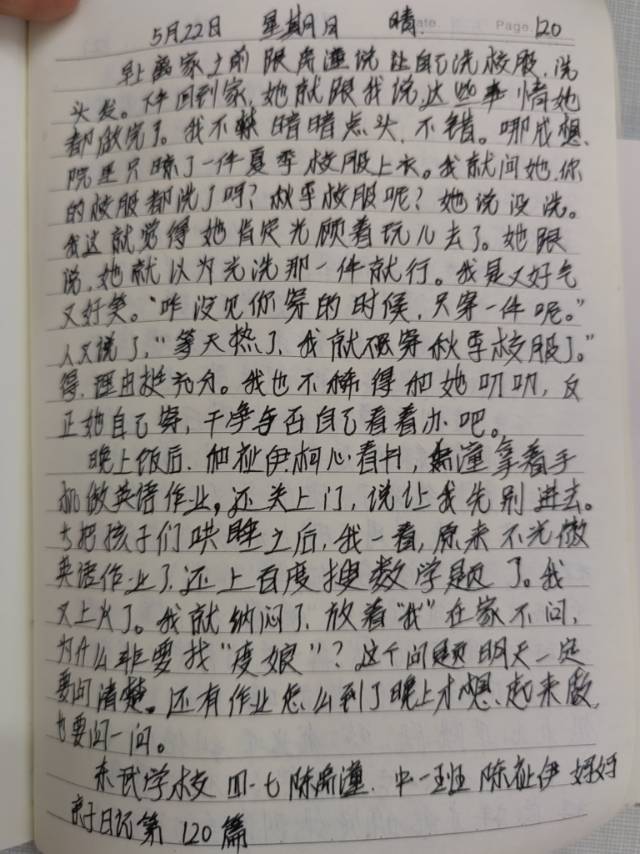 5月22日 星期日 晴 ate Page. 120
早上离家之前跟禹潼说让自己洗校服,洗
头发。下午回到家,她就跟我说,这些事情她
都做完了。我不禁暗暗点头,不错。哪成想,
院里只晾了一件夏季校服上衣。我就问她,你
的校服都洗了吗?秋季校服呢?她说没洗。
我这就觉得她肯定光顾着玩儿去了。她跟
说,她就以为光洗那一件就行。我是又好气
又好笑。"咋没见你穿的时候,只穿一件呢。"
人又说了,"等天热了,我就不穿秋季校服了。"
得,理由挺充分。我也不稀得和她叨叨,反
正她自己穿,干净与否自己看着办吧。
晚上饭后,和祉伊柯心看书,禹潼拿着手
机做英语作业,还关上门,说让我先别进去。
去把孩子们哄睡之后,我一看,原来不光做
英语作业了,还上百度搜数学题了。我
又上火了。我就纳闷了,放着"我"在家不问,
为什么非要找"度娘"?这个问题明天一定
要问清楚。还有作业怎么到了晚上才想起来做,
也要问一问。
东武学校 四·七陈禹潼 中一班 陈祉伊 妈妈
亲子日记第 120 篇